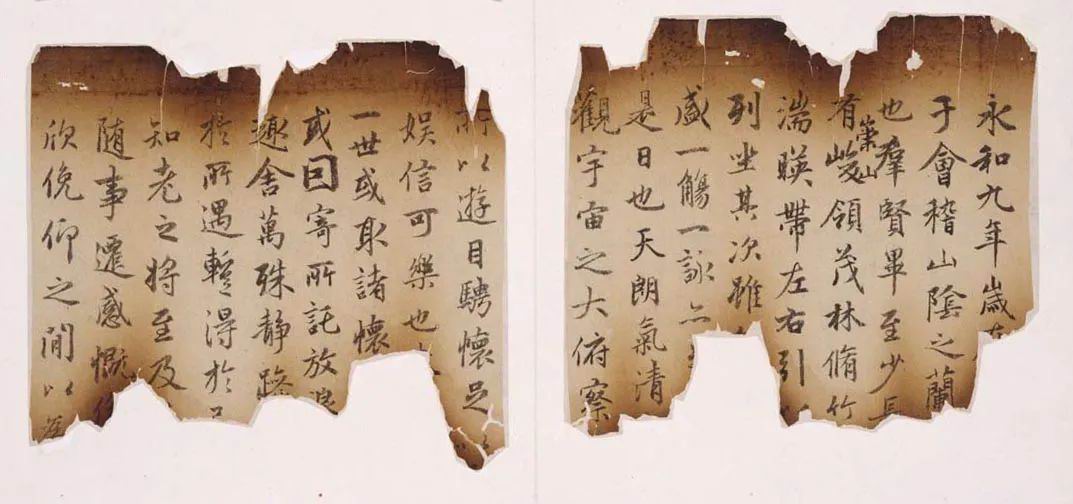 永和九年歲在
于會稽山陰之蘭
也羣賢畢至少長
有崇山峻領茂林脩竹
湍暎帶左右引以
列坐其次雖
盛一觴一詠亦
是日也天朗氣清
觀宇宙之大俯察
所以遊目騁懷足以
娛信可樂也
一世或取諸懷
或因寄所託放浪
趣舍萬殊靜躁
於所遇暫得於
知老之將至及
隨事遷感慨係
欣俛仰之閒以為